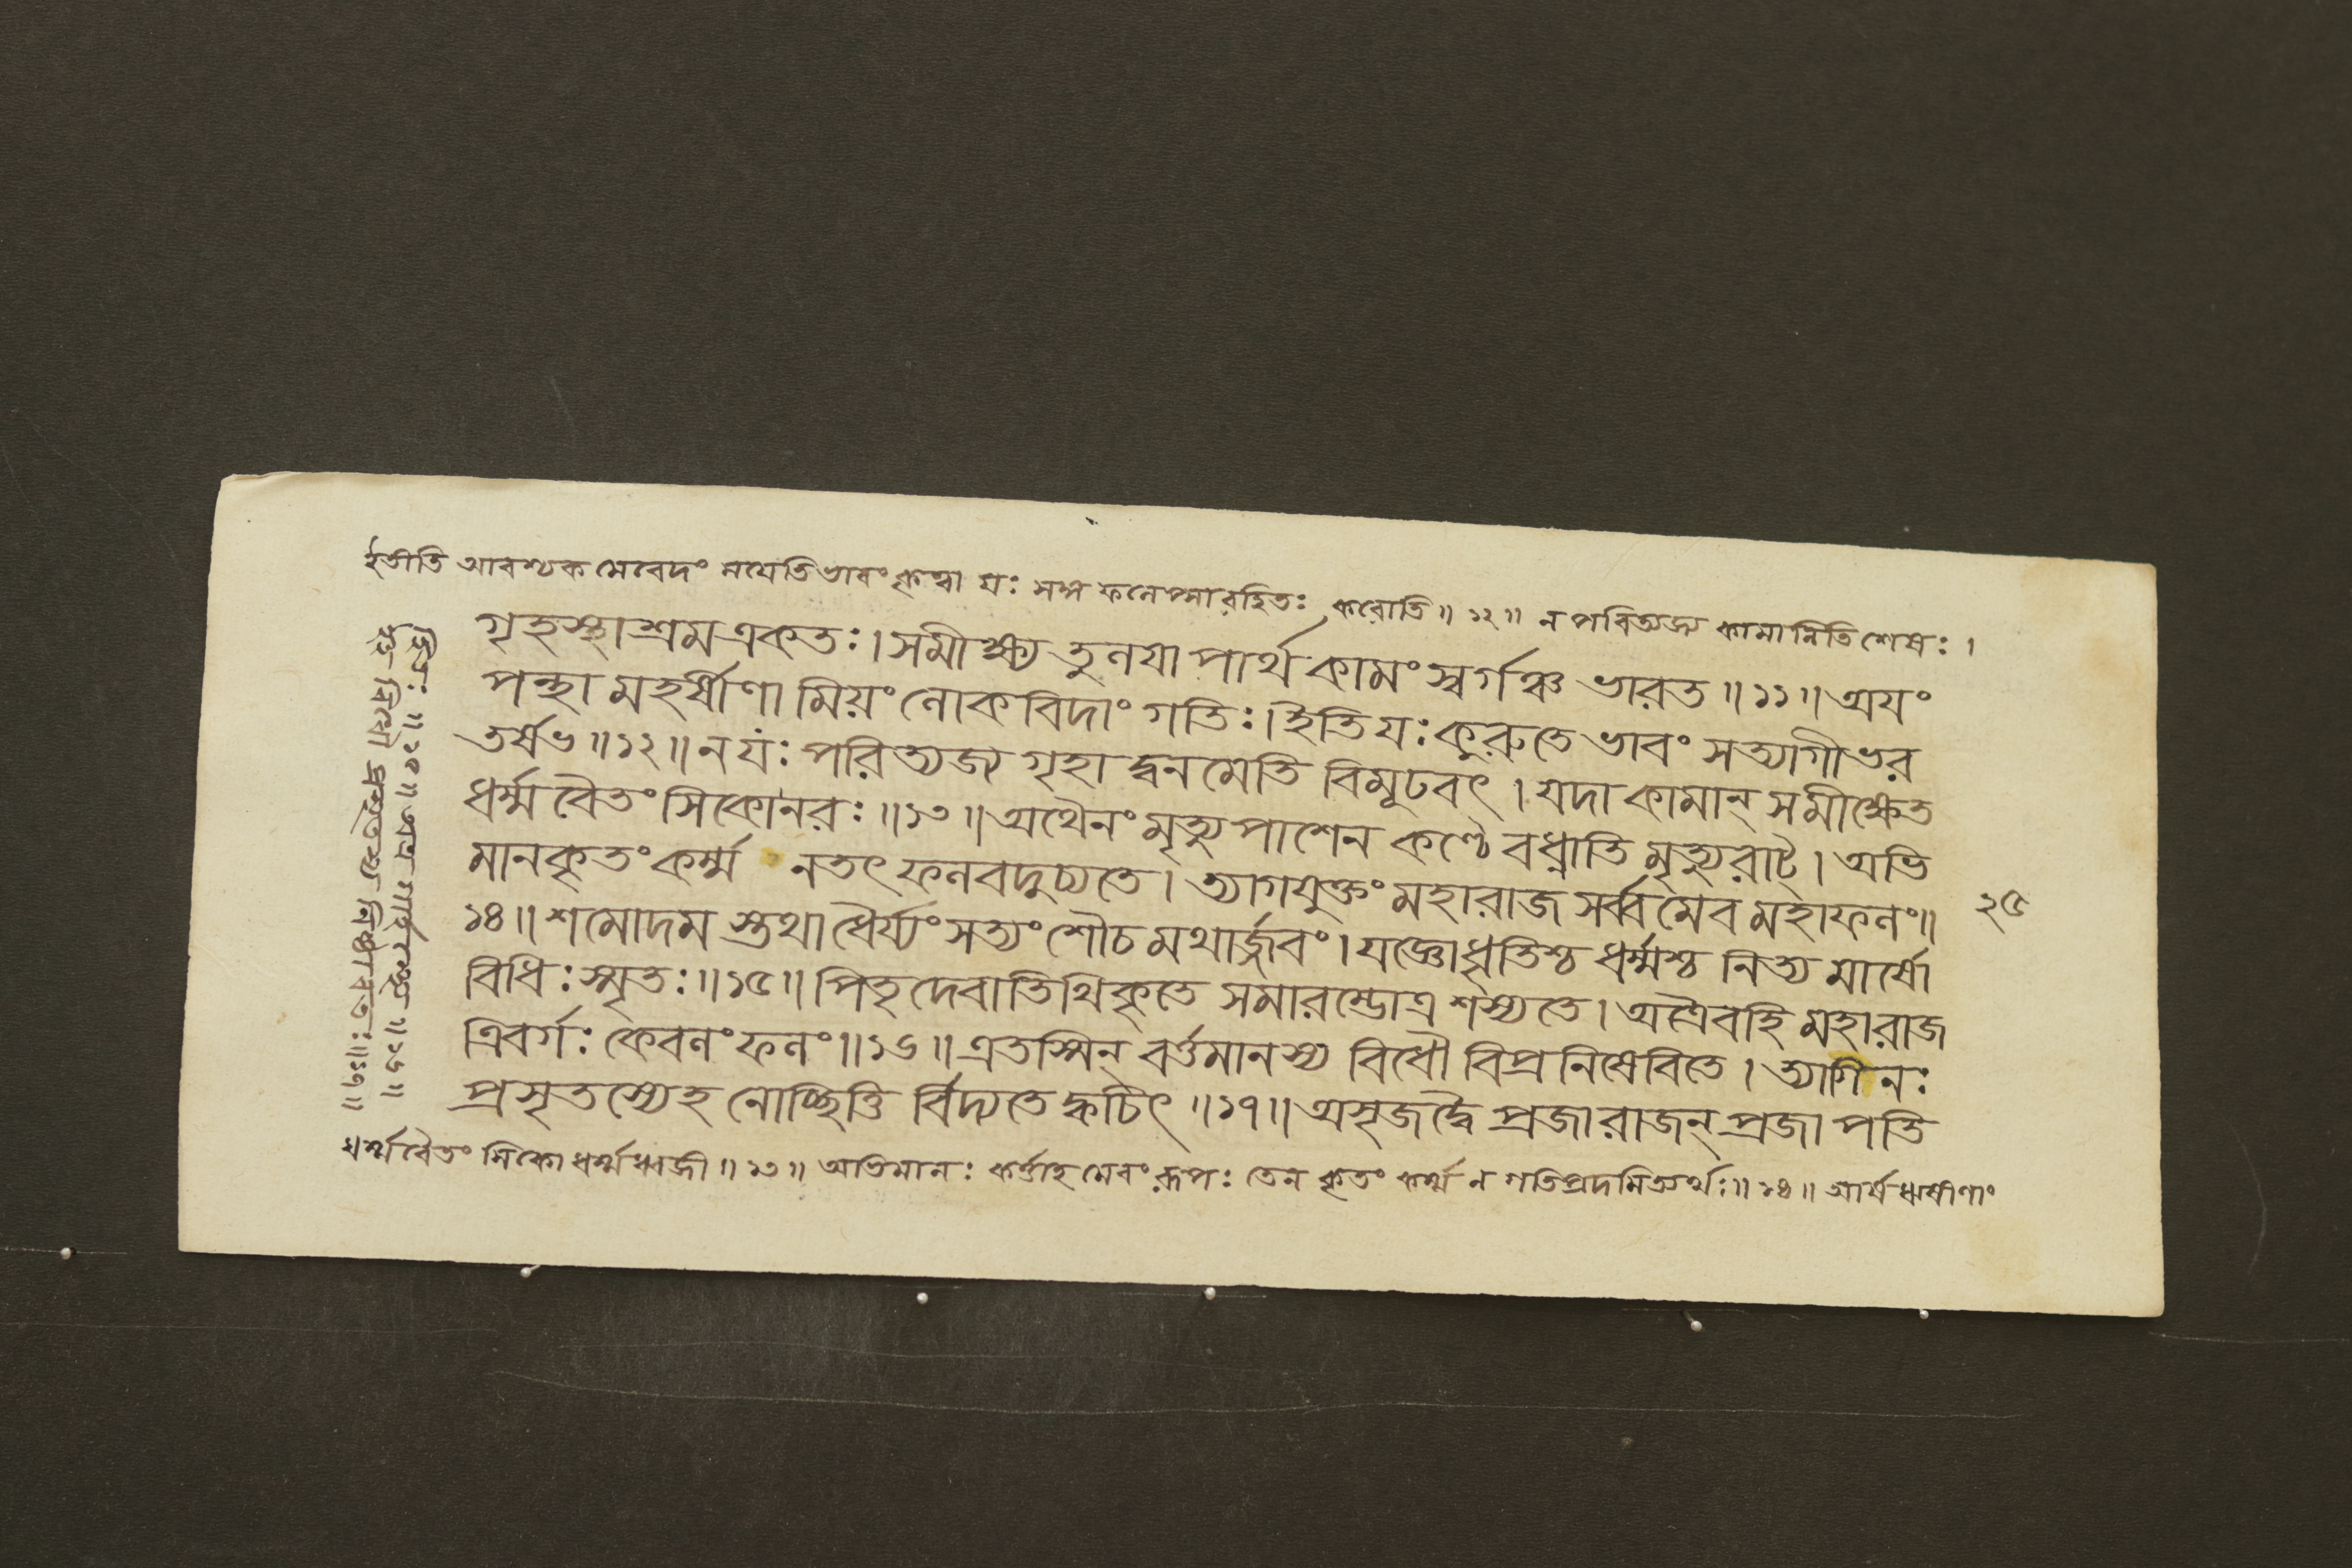 ইতীতি আবশ্যক মেবেদং মযেতি ভাবং কৃত্বা যঃ সম্ম ফলেপ্সারহিতঃ করোতি॥ ১২॥ ন পরিত্যজ্য কামানিতি শেষঃ।
গৃহস্থাশ্রম একতঃ। সমীক্ষ্য তুলযা পার্থ কামং স্বর্গঞ্চ ভারত॥ ১১॥ অযং
পন্থা মহর্ষীণা মিয়ং লোকবিদাং গতিঃ। ইতি যঃ কুরুতে ভাবং সত্যাগী ভর
তর্ষভ॥ ১২॥ ন যঃ পরিত্যজ্য গৃহা দ্বনমেতি বিমূঢবৎ। যদা কামান্ সমীক্ষেত
ধর্ম্মবৈতংসিকো নরঃ॥ ১৩॥ অথৈনং মৃত্যুপাশেন কণ্ঠে বধ্নাতি মৃত্যুরাট্। অভি
মানকৃতং কর্ম্ম নতৎ ফলবদুচ্যতে। ত্যাগযুক্তং মহারাজ সর্ব্বমেব মহাফলং॥
১৪॥ শমোদম স্তথা ধৈর্য্যং সত্যং শৌচ মথার্জ্জবং। যজ্ঞোধৃতিশ্চ ধর্ম্মশ্চ নিত্য মার্ষো
বিধিঃ স্মৃতঃ॥ ১৫॥ পিতৃদেবাতিথিকৃতে সমারম্ভোত্র শস্যতে। অত্রৈবহি মহারাজ
ত্রিবর্গঃ কেবলং ফলং॥ ১৬॥ এতস্মিন্ বর্ত্তমানস্য বিধৌ বিপ্রনিষেবিতে। ত্যাগিনঃ
প্রসৃতস্যেহ নোচ্ছিত্তি র্বিদ্যতে ক্বচিৎ॥ ১৭॥ অসৃজদ্বৈ প্রজা রাজন্ প্রজাপতি
ধর্ম্মবৈতংসিকো ধর্ম্মধ্বজী॥ ১৩॥ অভিমানঃ কর্ত্তাহমেবংরূপঃ তেন কৃতং কর্ম্ম ন গতিপ্রদমিত্যর্থঃ॥ ১৪॥ আর্ষ ঋষীণাং
হিতঃ॥ ১৫॥ অত্র গার্হস্থ্যে॥ ১৬॥
প্রসৃতস্য নিষ্ঠাবতঃ॥ ১৭॥
২৫